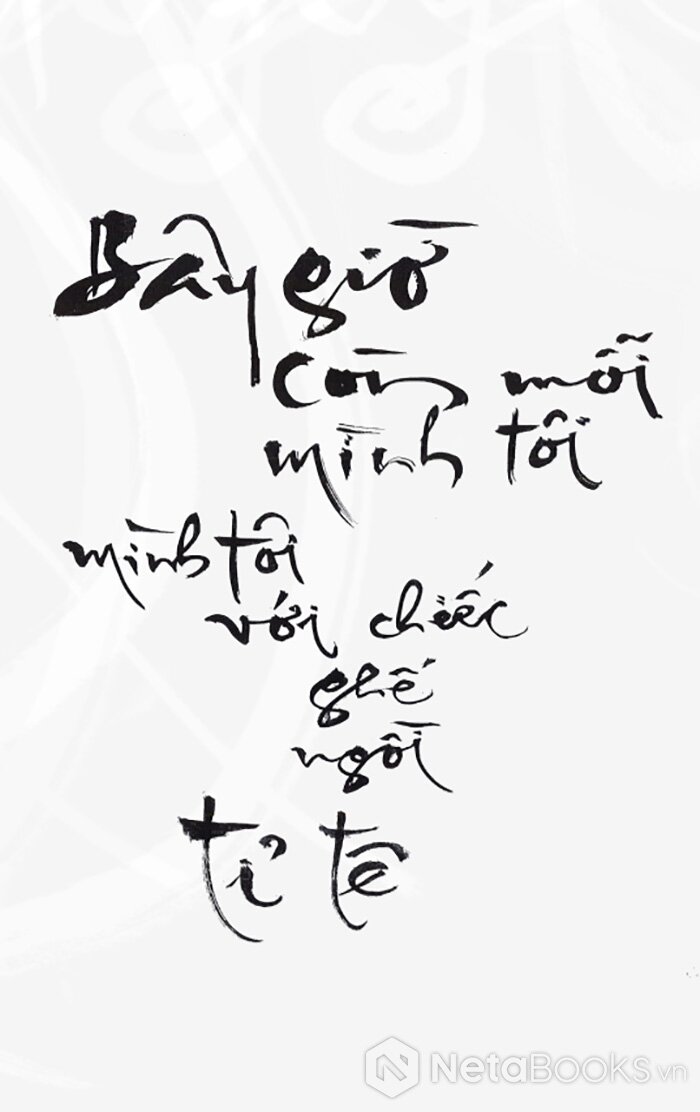 Bây giờ
còn mỗi
mình tôi
mình tôi
với chiếc
ghế
ngồi
tỉ tê
NetaBooks.vn